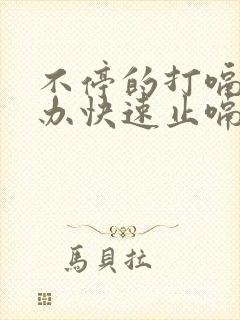 不停的打嗝
办快速止嗝
馬貝拉